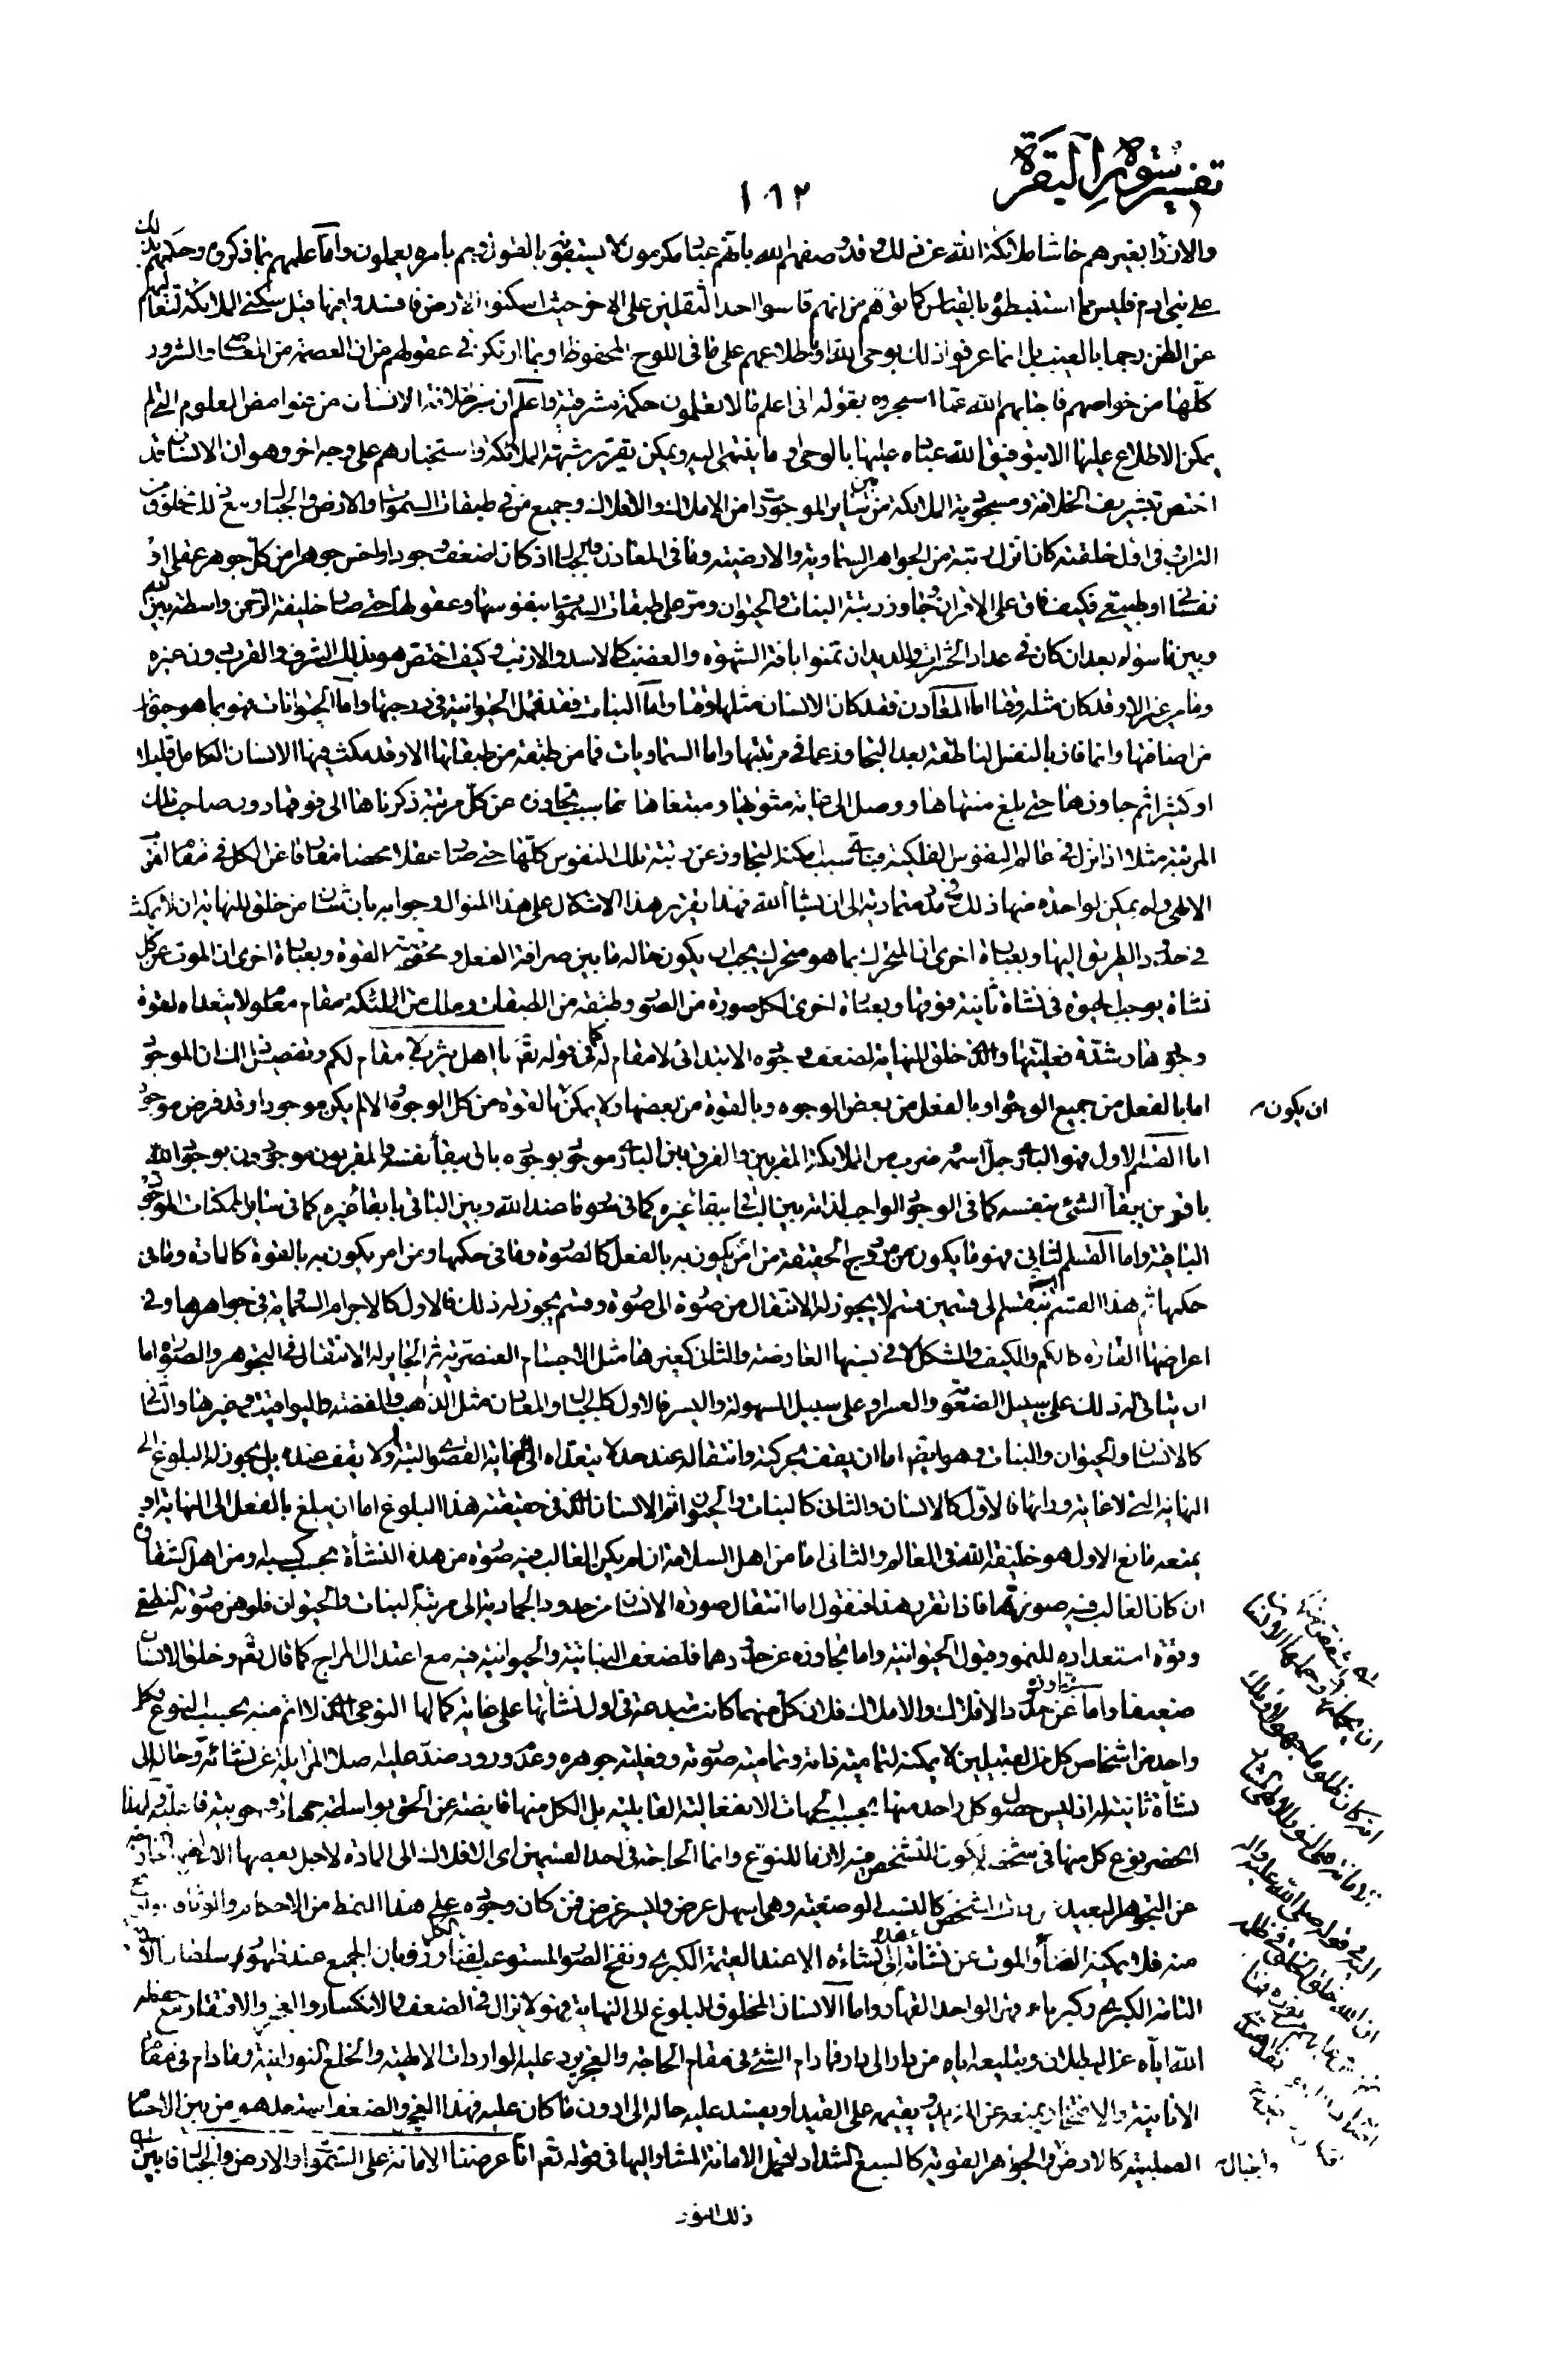 تفسير سورة البقرة
١٦٢
والازراء بغيرهم حاشا ملائكة الله عن ذلك وقد وصفهم الله بانهم عباد مكرمون لا يسبقونه بالقول وهم بامره يعملون واما علمهم بما ذكروه وحكمهم بذلك
على بنى ادم فليس مما استنبطوه بالقياس كما توهم من انهم قاسوا احد الثقلين على الاخر حيث اسكنوا الارض فافسدوا فيها قبل سكنى الملائكة لتعاليهم
عن الظن رجما بالغيب بل انما عرفوا ذلك بوحى الله او باطلاعهم على ما فى اللوح المحفوظ او بما ارتكز فى عقولهم من ان العصمة من المعصية والشرور
كلها من خواصهم فاجابهم الله عما استخبروه بقوله انى اعلم ما لا تعلمون حكمة مشرقية واعلم ان سر خلافة الانسان من غوامض العلوم التى لم
يمكن الاطلاع عليها الا بتوفيق الله عباده عليها بالوحى او ما ينتمى اليه ويمكن تقرير شبهة الملائكة واستخبارهم على وجه اخر وهو ان الانسان قد
اختص بتشريف الخلافة ومسجودية الملائكة من بين سائر الموجودات من الاملاك والافلاك وجميع من فى طبقات السموات والارض والجبال مع انه مخلوق من
التراب فى اول خلقته كان انزل رتبة من الجواهر السماوية والارضية وما فى المعادن والجبال اذ كان اضعف وجودا واخس جوهرا من كل جوهر عقلى او
نفسانى او طبيعى فكيف فاق على الاقران وتجاوز رتبة النبات والحيوان ومر على طبقات السموات بنفوسها وعقولها حتى صار خليفة الرحمن واسطة بينه
وبين ما سواه بعد ان كان فى عداد الحشرات والديدان ثم منوا بافة الشهوة والغضب كالاسد والارنب وكيف اختص هو بذلك الشرف والقرب دون غيره
وما من غيره الا وقد كان مثله وقتا اما المعادن فقد كان الانسان مثلها وقتا واما النبات فقد فضل الحيوانية فى درجتها واما الحيوانات فهو بما هو حيوان
من اصنافها وانما فاز بالنفس الناطقة بعد التجاوز عما فى مرتبتها واما السماويات فما من طبقة من طبقاتها الا وقد مكث فيها الانسان الكامل قليلا
او كثيرا ثم جاوزها حتى بلغ منتهاها ووصل الى غاية مثواها ومبتغاها فما سبب تجاوزه عن كل مرتبة ذكرناها الى فوقها دون صاحب تلك
المرتبة مثلا اذا نزل فى عالم النفوس الفلكية فباى سبب امكنه التجاوز عن رتبة تلك النفوس كلها حتى صار عقلا محضا مفارقا عن الكل فى مقام القرب
الالهى ولم يمكن لواحدة منها ذلك فى مدد متمادية الى ان يشاء الله فهذا تقرير هذا الاشكال على هذا المنوال وجوابه بان شان من خلق للنهاية ان لا يمكث
فى حدود الطريق اليها وبعبارة اخرى ان المتحرك بما هو متحرك يجب ان يكون حاله ما بين صرافة الفعل ومحوضة القوة وبعبارة اخرى ان الموت عن كل
نشاة يوجب الحيوة فى نشاة ثانية فوقها وبعبارة اخرى لكل صورة من الصور وطبقة من الطبقات وملك من الملئكة مقام معلوم لا يتعداه لقوة
وجودها وشدة فعليتها والذى خلق للنهاية لضعف وجوده الابتدائى لا مقام له كما فى قوله تعالى يا اهل يثرب لا مقام لكم وتفصيل ذلك ان الموجود
ان يكون
اما بالفعل من جميع الوجوه او بالفعل من بعض الوجوه وبالقوة من بعضها ولا يمكن بالقوة من كل الوجوه الا لم يكن موجودا وقد فرض موجودا
اما القسم الاول فهو البارى جل اسمه وضرب من الملائكة المقربين والفرق بين البارى موجود بوجوده باق ببقاء نفسه والمقربون موجودون بوجود الله
باقون ببقاء الشئ بنفسه كما فى الوجود الواجب لذاته بين الباقى ببقاء غيره كما فى نحو ما عند الله وبين الباقى بابقاء غيره كما فى سائر الممكنات الموجودة
الباقية واما القسم الثانى فهو ما يكون مزدوج الحقيقة من امر يكون به بالفعل كالصورة وما فى حكمها ومن امر يكون به بالقوة كالمادة وما فى
حكمها ثم هذا القسم ينقسم الى قسمين قسم لا يجوز له الانتقال من صورة الى صورة وقسم يجوز له ذلك فالاول كالاجرام السماوية فى جواهرها وفى
اعراضها القارة كالكم والكيف والشكل لا فى نسبها العارضة والثانى كغيرها مثل الاجسام العنصرية ثم الجايز له الانتقال فى الجوهر والصورة اما
ان يتاتى له ذلك على سبيل الصعوبة والعسر او على سبيل السهولة واليسر فالاول كالجبال والمعادن مثل الذهب والفضة واليواقيت وغيرها والثانى
كالانسان والحيوان والنبات وهو ايضا اما ان يقف بحركته وانتقاله عند حد لا يتعداه الى الغاية القصوى البتة او لا يقف عنده بل يجوز له البلوغ الى
النهاية التى لا غاية ورائها فالاول كالانسان والثانى كالنبات والحيوان ثم الانسان الذى فى حقيقته هذا البلوغ اما ان يبلغ بالفعل الى النهاية او
يمنعه مانع الاول هو خليفة الله فى العالم والثانى اما من اهل السلامة ان لم يكن الغالب فيه صورة من هذه النشأة بحسب كسبه ومن اهل الشقاوة
ان كان الغالب فيه صورتها فاذا تقرر هذا فنقول اما انتقال صورة الانسان من حدود الجمادية الى مرتبة النبات والحيوان فلوهن صورته الطبيعية
وقوة استعداده للنمو وقبول الحيوانية واما تجاوزه عن حدودهما فلضعف النباتية والحيوانية فيه مع اعتدال المزاج كما قال تعالى وخلق الانسان
ضعيفا واما تجاوزه عن حدود الافلاك والاملاك فلان كل منهما كانت مبدعة فى اول نشأتها على غاية كمالها النوعى الذى لا اتم منه بحسب النوع فكل
واحد من اشخاص كل من القبيلين لا يمكنه لتمامية ذاته وتمامية صورته وفعلية جوهره وعدم ورود ضد عليه اصلا المزايلة عن بقائه وحاله الى
نشأة ثانية له اذ ليس حصول كل واحد منها بحسب الجهات الانفعالية القابلية بل الكل منها فايضة عن الحق بواسطة جهاز وجوبية فاعلية ولهذا
انحصر نوع كل منها فى شخصه لكون التشخص فيه لازما للنوع وانما الحاجة فى احد القسمين اى الافلاك الى المادة لاجل بعض
عن التجوهر البعيد كالنسب الوضعية وهى اسهل عرض وايسر غرض فمن كان وجوده على هذا النمط من الاحكام والوثاقة
منه فلا يمكنه الفناء والموت عن نشاته الى نشاءة الا عند القيمة الكبرى ونفخ الصور المستوعب لفناء الكل وفوبان الجميع عند ظهور سلطان
التامة الكبرى وكبرياء قهر الواحد القهار واما الانسان المخلوق للبلوغ الى النهاية فهو لا يزال فى الضعف والانكسار والعجز والافتقار مع حفظ
الله اياه عن البطلان وتبليغه اياه من دار الى دار فما دام الشئ فى مقام الحاجة والعجز يرد عليه الواردات الالهية والخلع النورانية وما دام فى مقام
الانانية والافتخار يمنعه عن المزيد ويقيمه على القيد او يفسد عليه حاله الى ادون ما كان عليه فهذا العجز والضعف استعد له من بين الاجسام
الصلبية كالارض والجواهر القوية كالسبع الشداد لتحمل الامانة المشار اليها فى قوله تعالى انا عرضنا الامانة على السموات والارض والجبال فابين
والجبال
ان يحملنها وحملها الانسان
انه كان ظلوما جهولا
ذلك النور